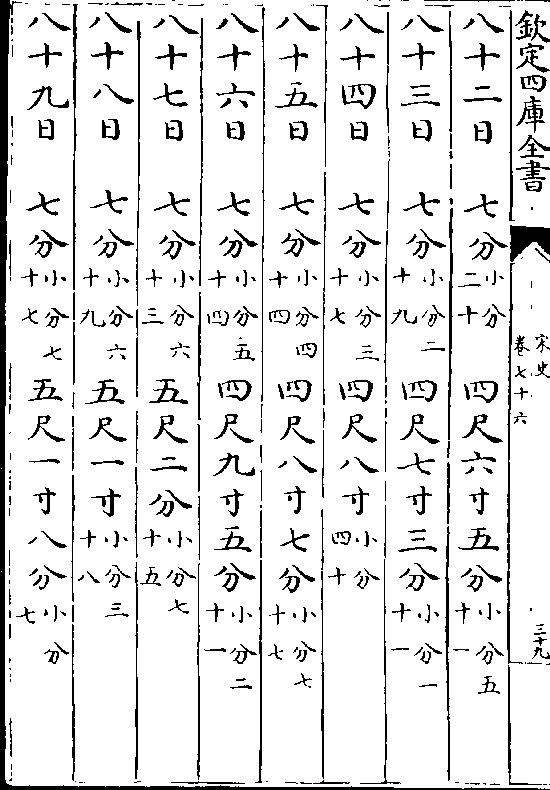 欽定四庫全書
宋史
卷七十六
三十九
八十二日 七分小分二十 四尺六寸五分小分五十一
八十三日 七分小分二十九 四尺七寸三分小分一十一
八十四日 七分小分三十七 四尺八寸小分四十
八十五日 七分小分四十四 四尺八寸七分小分七十七
八十六日 七分小分五十四 四尺九寸五分小分二十一
八十七日 七分小分六十三 五尺二分小分七十五
八十八日 七分小分六十九 五尺一寸小分三十八
八十九日 七分小分七十七 五尺一寸八分小分七